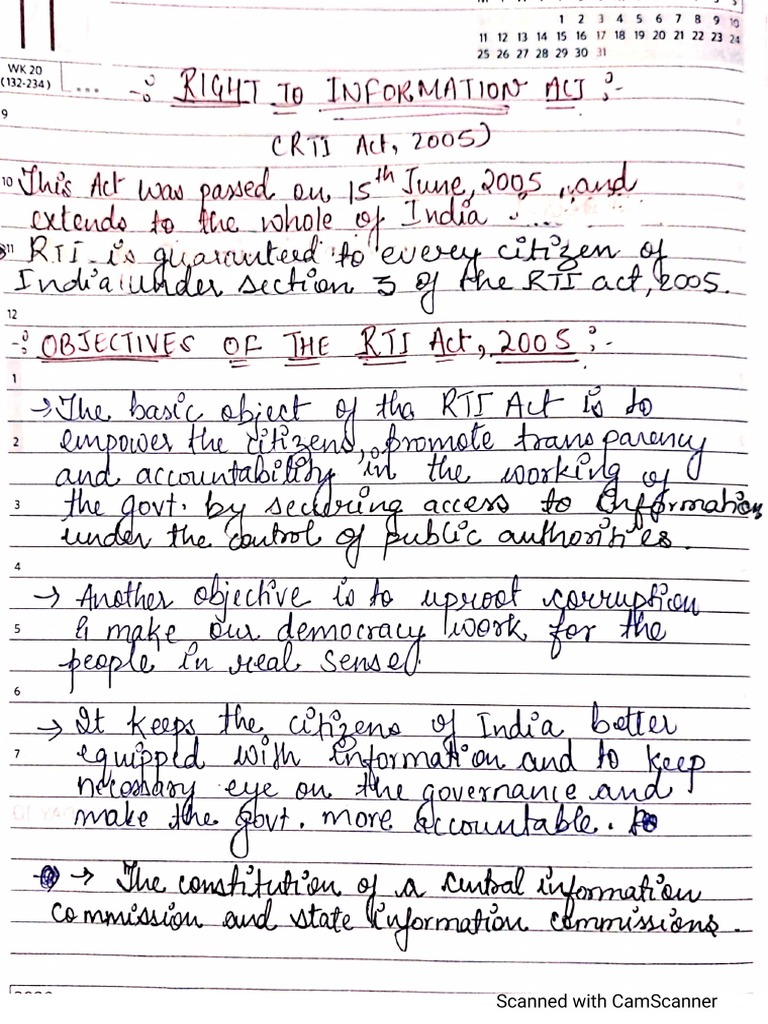 11
1 2 3 4 5 6 7 8 9 10
11 12 13 14 15 16 17 18 19 20 21 22 23 24
25 26 27 28 29 30 31
WK 20
(132-234)
-: RIGHT TO INFORMATION ACT :-
9
(RTI Act, 2005)
10 This Act was passed on 15th June, 2005, and
extends to the whole of India.
11 RTI is guaranteed to every citizen of
India under section 3 of the RTI act, 2005.
12
-: OBJECTIVES OF THE RTI Act, 2005 :-
1
→ The basic object of the RTI Act is to
2 empower the citizens, promote transparency
and accountability in the working of
3 the govt. by securing access to information
under the control of public authorities.
4
→ Another objective is to uproot corruption
5 & make our democracy work for the
people in real sense.
6
→ It keeps the citizens of India better
7 equipped with information and to keep
necessary eye on the governance and
make the govt. more accountable.
→ The constitution of a central information
commission and state information commissions.
Scanned with CamScanner